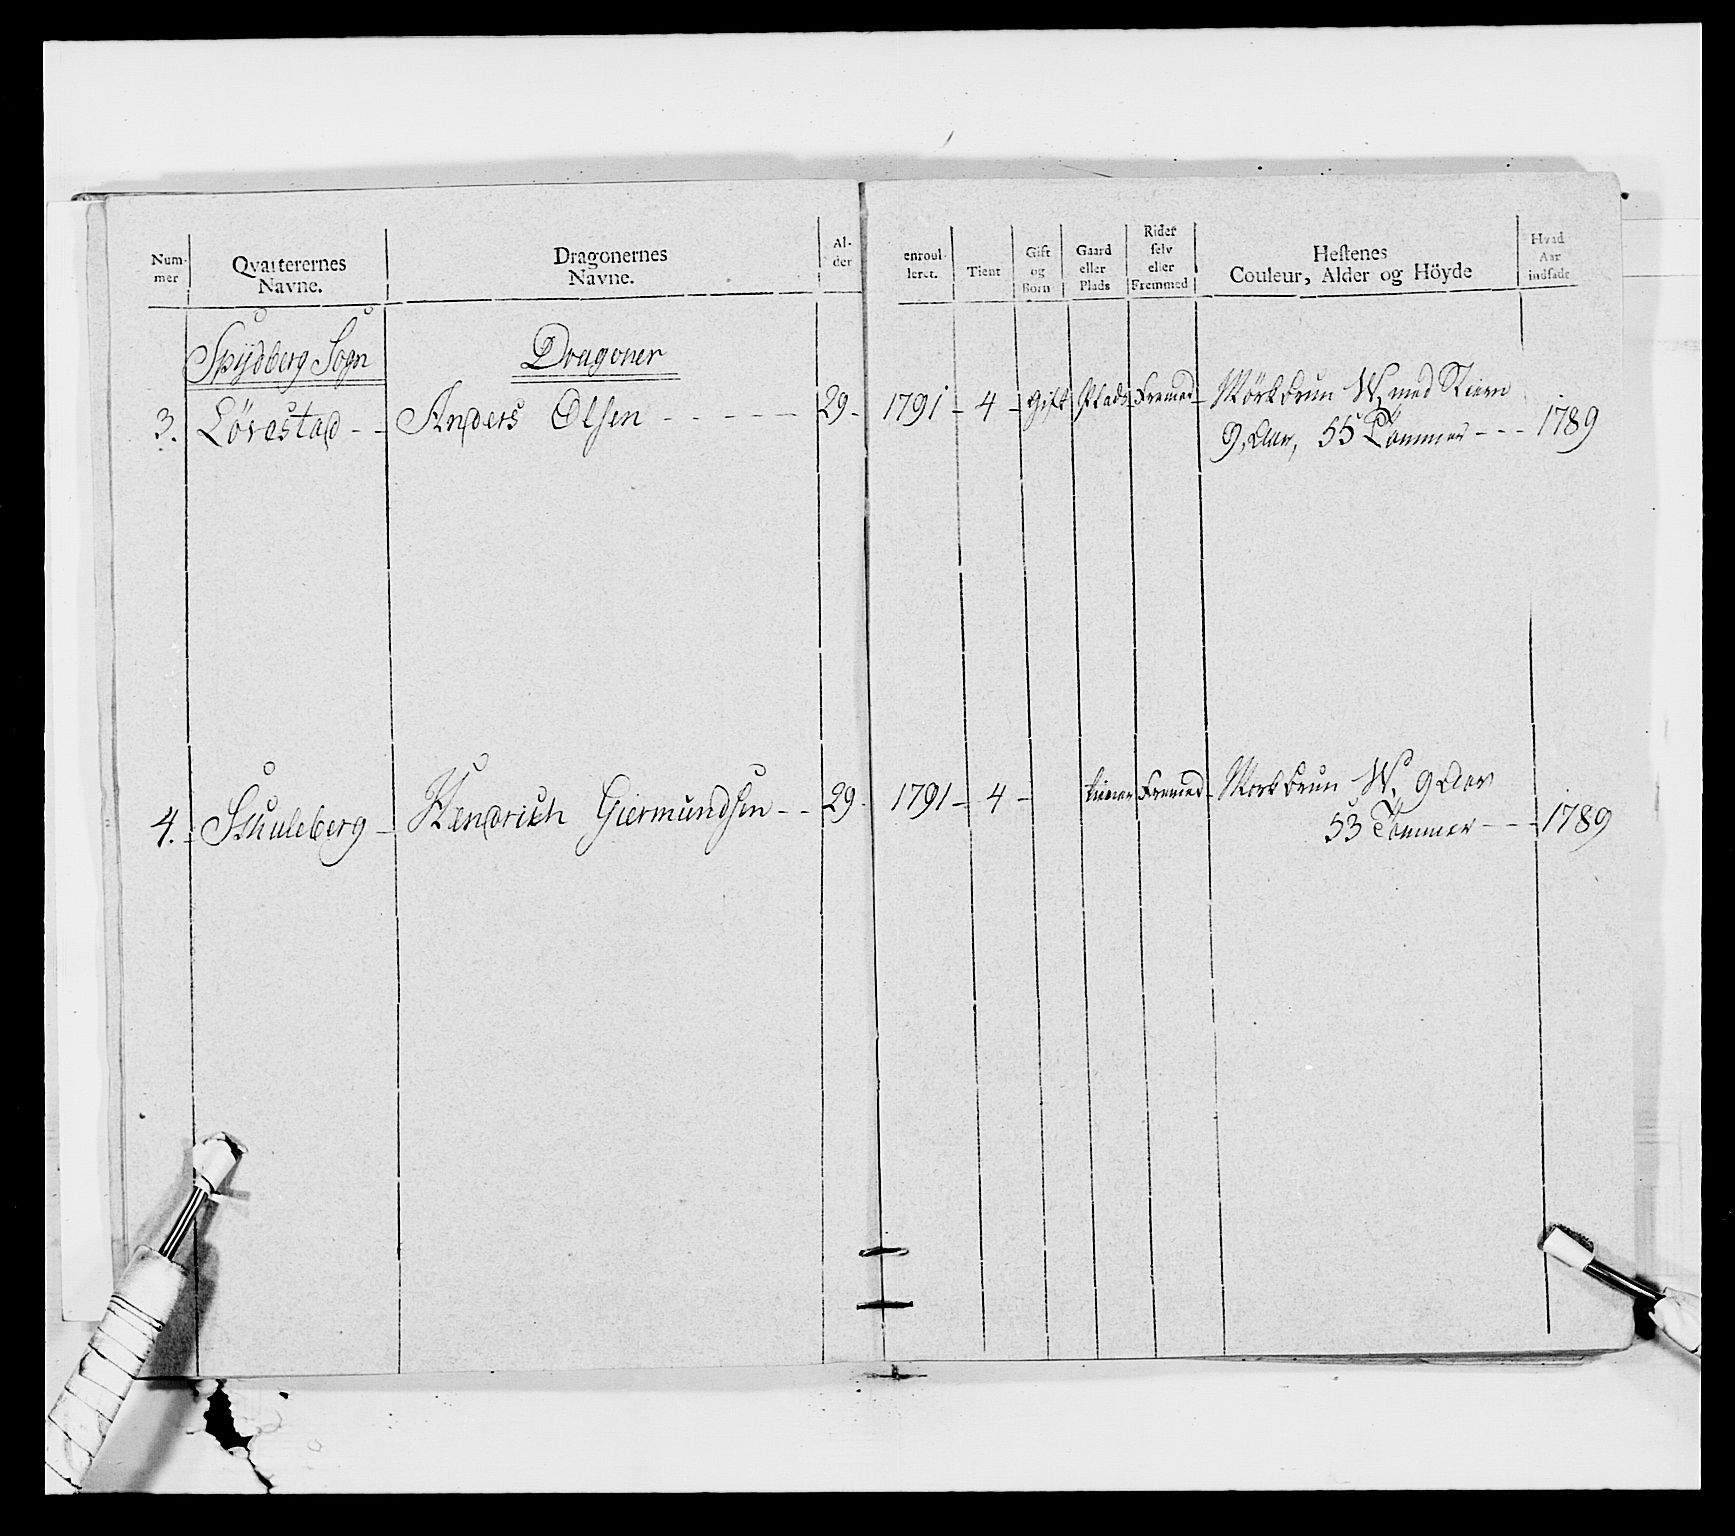 Num-
mer
Qvarterernes
Navne.
Dragonernes
Navne.
Al-
der
enroul-
leret.
Tient
Gift
og
Börn
Gaard
eller
Plads
Rider
selv
eller
Fremmed
Hestenes
Couleur, Alder og Höyde
Hvad
Aar
indsadt
Spydberg Sogn
Dragoner
3. Lövestad - - Anders Olsen - - - - - - 29. 1791 - 4 - Gift Plads Fremed - Mörkbrun W. med Stiern
9 Aar, 55 Tommer - - - 1789
4. Skuleberg - Hendrich Giermundsen - - 29. 1791 - 4 - tiener Fremed - Morkbrun W. 9 Aar
53 Tommer - - - 1789